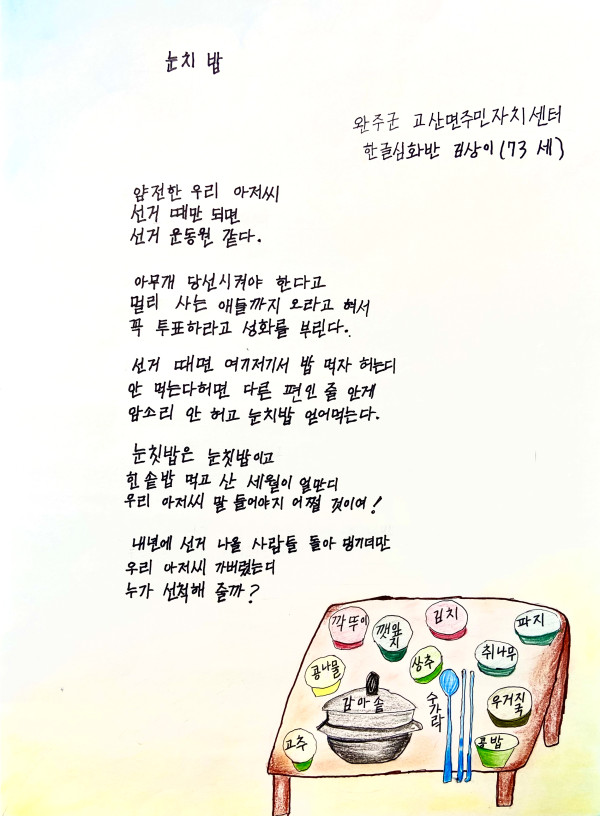 눈치 밥
완주군 고산면주민자치센터
한글심화반 김상이(73 세)
얌전한 우리 아저씨
선거 때만 되면
선거 운동원 같다.
아무개 당선시켜야 한다고
멀리 사는 애들까지 오라고 혀서
꼭 투표하라고 성화를 부린다.
선거 때면 여기저기서 밥 먹자 허는디
안 먹는다허면 다른 편인 줄 안게
암소리 안 허고 눈치밥 얻어먹는다.
눈칫밥은 눈칫밥이고
한 솥밥 먹고 산 세월이 얼만디
우리 아저씨 말 들어야지 어쩔 것이여!
내년에 선거 나올 사람들 돌아 댕기더만
우리 아저씨 가버렸는디
누가 선척해 줄까?
깍뚜이
깻잎지
김치
파지
콩나물
상추
취나무
감아솥
수가락
우거지국
고추
콩밥